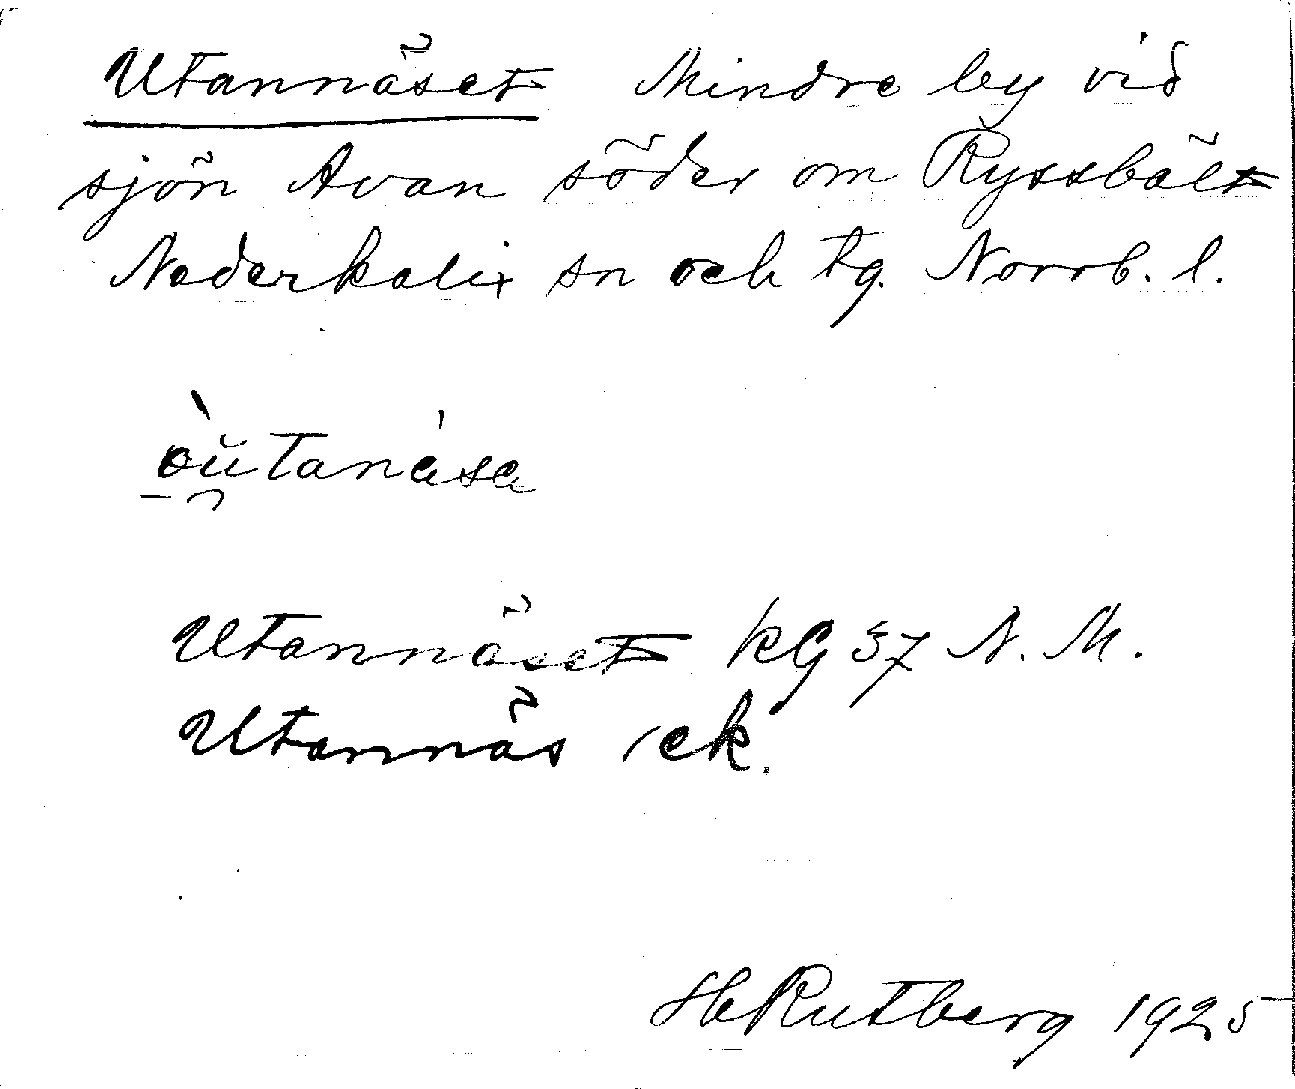 Utannäset Mindre by vid
sjön Avan söder om Ryssbält
Nederkalix sn och tg. Norrb. l.
òŭtanása
Utannäset kG 57 N. M.
Utannäs ek.
H Rutberg 1925